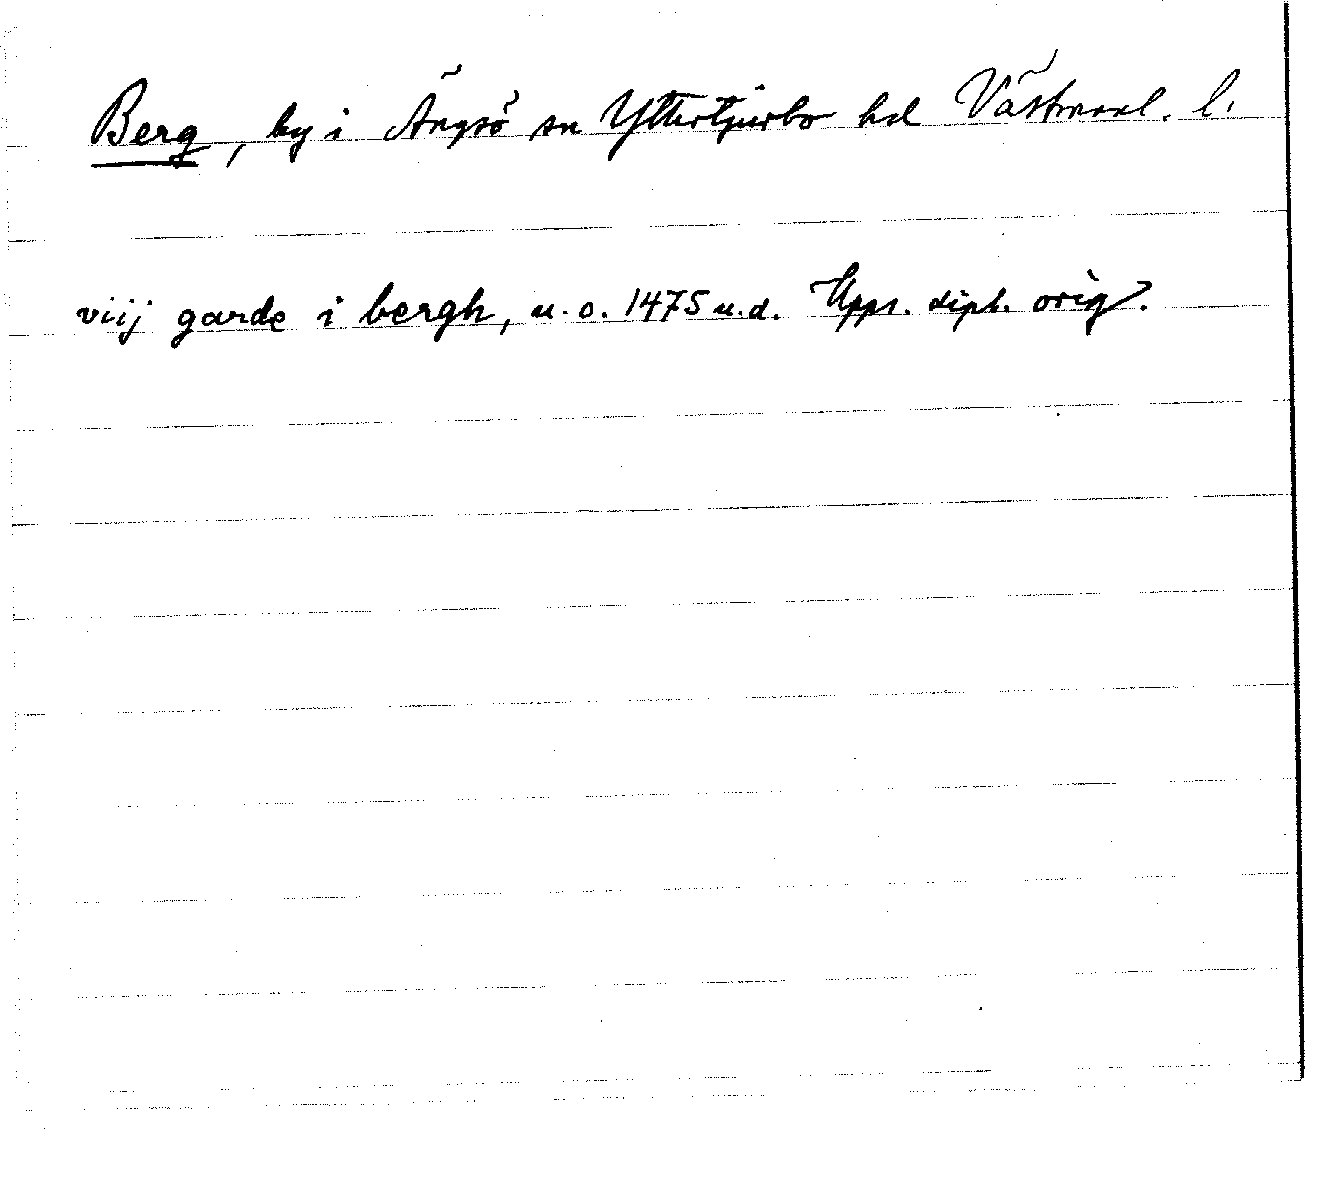 Berg, by i Ängsö sn Yttertjurbo hd Västmanl. l.
viij garde i bergh, u.o. 1475 u.d. Upps. dipl. orig.